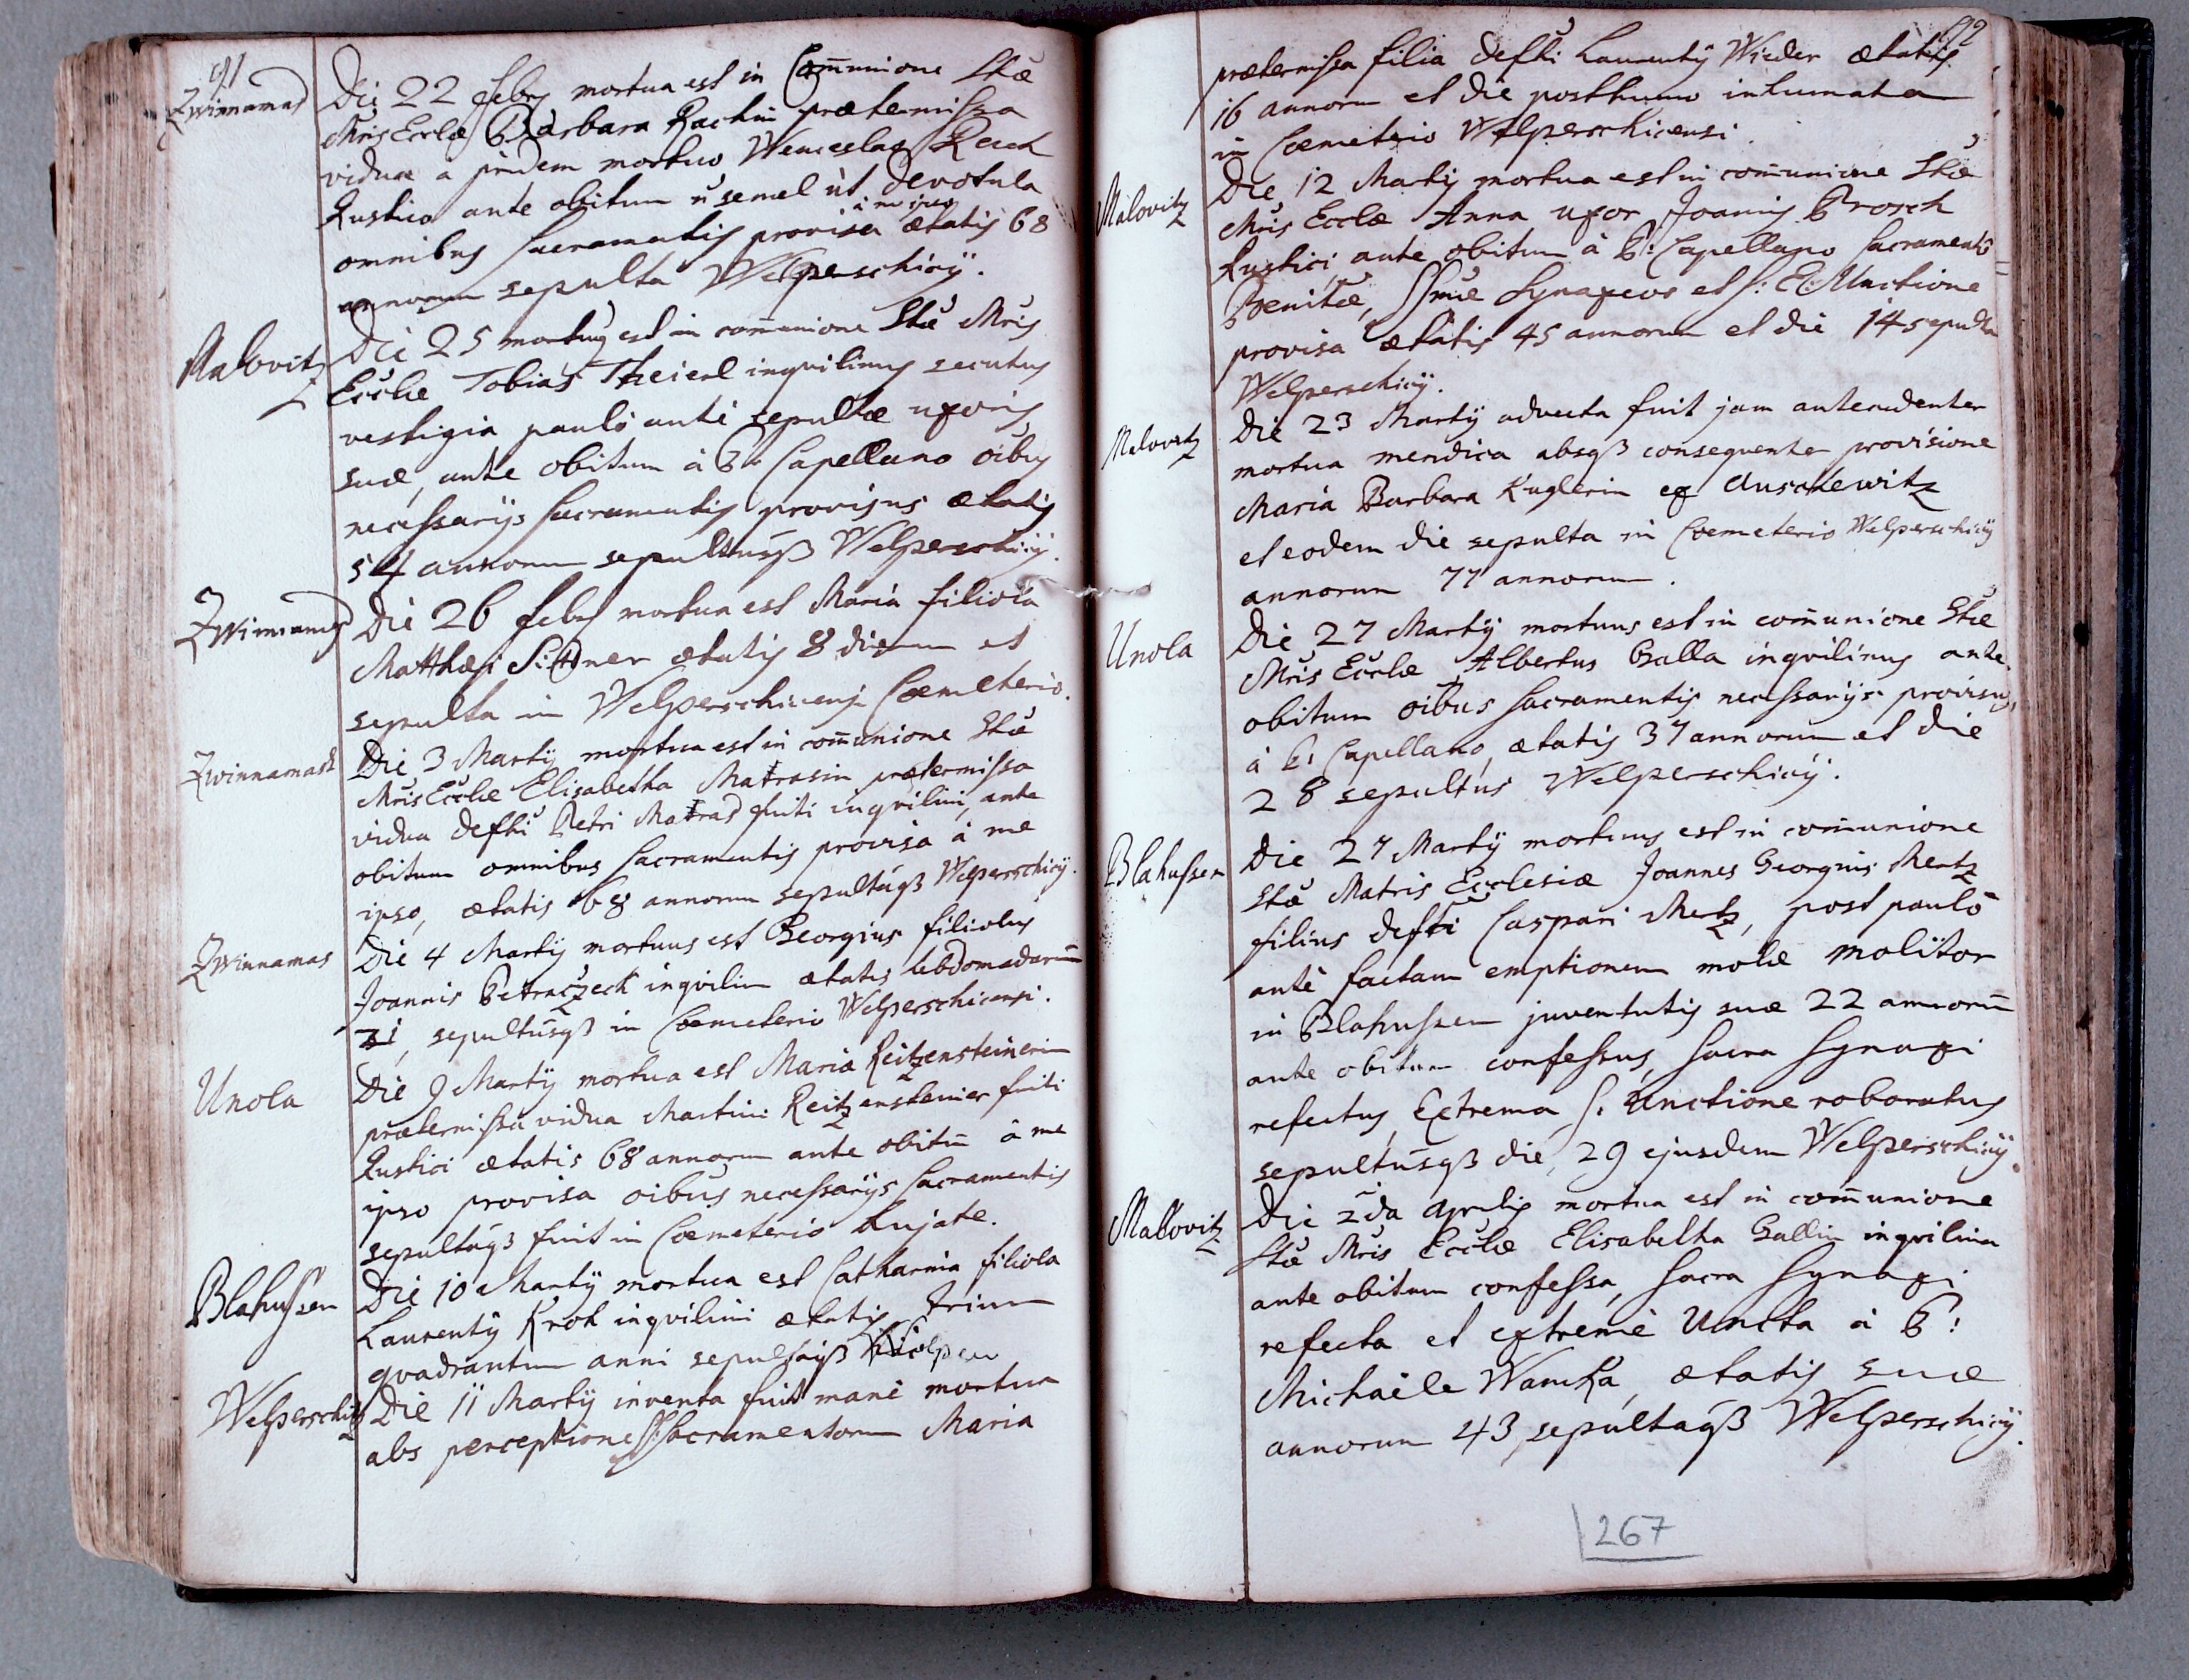 91
Zwinnamas
Die 22 Febry mortua est in Communione Stæ
Mris Ecclæ Barbara Rachin prætermissa
vidua a pridem mortuo Wenceslao Rach
Rustico ante obitum semel ut devotula
à me ipso
omnibus Sacramentis provisa ætatis 68
annorum sepulta Welperschicÿ.
Malovitz
Die 25 mortuus est in communione Stæ Mris
Ecclæ Tobias Theierl inqvilinus secutus
vestigia paulò ante sepultæ uxoris
suæ, ante obitum à P: Capellano oibus
necessarÿs Sacramentis provisus ætatis
54 annorum sepultusqȝ Welperschicÿ.
Zwinnamas
Die 26 febry mortua est Maria filiola
Matthæi Sittner ætatis 8 dierum et
sepulta in Welperschicensi Cœmeterio.
Zwinnamask
Die 3 Martÿ mortua est in comunione Stæ
Mris Ecclæ Elisabetha Matrasin prætermissa
vidua defti Petri Matras fuiti inqvilini, ante
obitum omnibus Sacramentis provisa à me
ipso, ætatis 68 annorum sepultaqȝ Welperschicÿ.
Zwinnamas
Die 4 Martÿ mortuus est Georgius filiolus
Joannis Petraczeck inqvilini ætatis hebdomadarum
, sepultusqȝ in Cœmeterio Welperschicensi.
Unola
Die 9 Martÿ mortua est Maria Reitzensteinerin
prætermissa vidua Martini Reitzensteiner fuiti
Rustici ætatis 68 annorum ante obitum à me
ipso provisa oibus necessarÿs Sacramentis
sepultaqȝ fuit in Cœmeterio hujate.
Blahussen
Die 10 Martÿ mortua est Catharina filiola
Laurentÿ Krok inqvilini ætatis trium
qvadrantum anni sepultaqȝ
Welperschitz
Die 11 Martÿ inventa fuit mane mortua
abs perceptione SS: Sacramentorum Maria
92
prætermissa filia defti Laurentÿ Wieder ætatis
16 annorum et die posthumo inhumata
in Cœmeterio Welperschicensi.
Malovitz
Die 12 Martÿ mortua est in comunione Stæ
Mris Ecclæ Anna uxor Joannis Prosch
Rustici, ante obitum à P: Capellano Sacramento
Pœnitæ, SSmæ Synaxeos et S: E: Unctione
provisa ætatis 45 annorum et die 14 sepulta
Welperschicÿ.
Malovitz
Die 23 Martÿ advecta fuit jam antecedenter
mortua mendica absqȝ consequenter provisione
Maria Barbara Kuglerin ex Auschewitz
et eodem die sepulta in Cœmeterio Welperschicÿ
annorum 77 annorum.
Unola
Die 27 Martÿ mortuus est in comunione Stæ
Mris Ecclæ Albertus Galla inqvilinus ante
obitum oibus Sacramentis necessarÿs provisus
à P: Capellano, ætatis 37 annorum et die
28 sepultus Welperschicÿ.
Blahussen
Die 27 Martÿ mortuus est in comunione
Stæ Matris Ecclesiæ Joannes Georgius Mertz
filius defti Caspari Mertz, post paulò
antè factam emptionem molæ molitor
in Blahussen juventutis suæ 22 annorum
ante obitum confessus, Sacra Synaxi
refectus, Extrema S: Unctione roboratus
sepultusqȝ die 29 ejusdem Welperschicÿ.
Mallovitz
Die 2da Aprilis mortua est in comunione
Stæ Mris Ecclæ Elisabetha Gallin inqvilina
ante obitum confessa, Sacra Synaxi
refecta et extremè Uncta à P:
Michaële Wanka, ætatis suæ
annorum 43 sepultaqȝ Welperschicÿ.
267